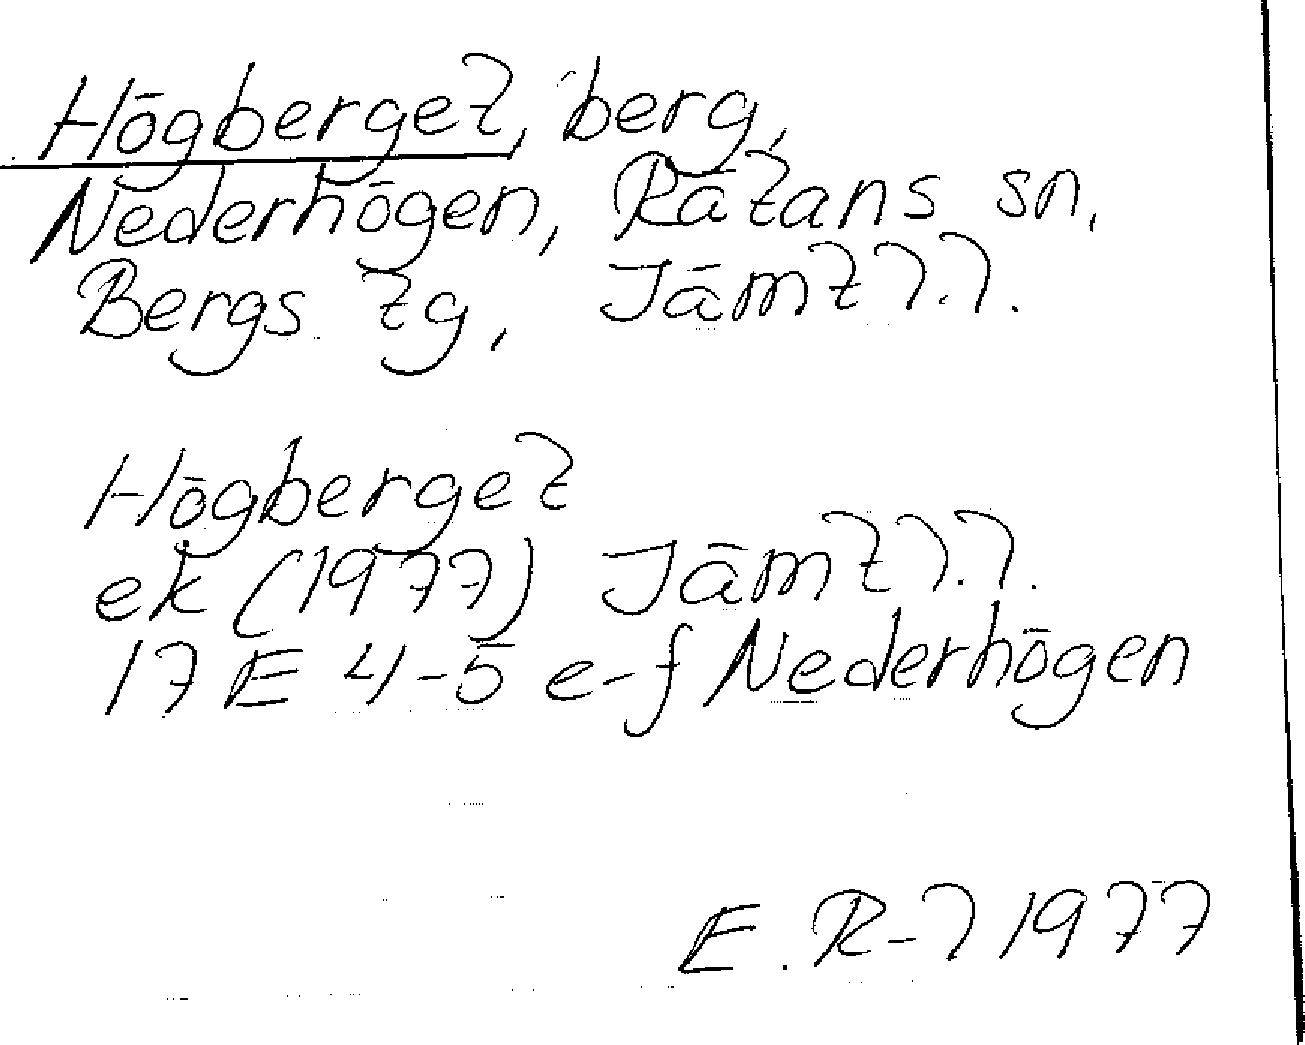 Högberget, berg,
Nederhögen, Rätans sn,
Bergs tg, Jämtl.l.
Högberget
ek (1977) Jämtl.l.
17 E 4-5 e-f Nederhögen
E. R-l 1977